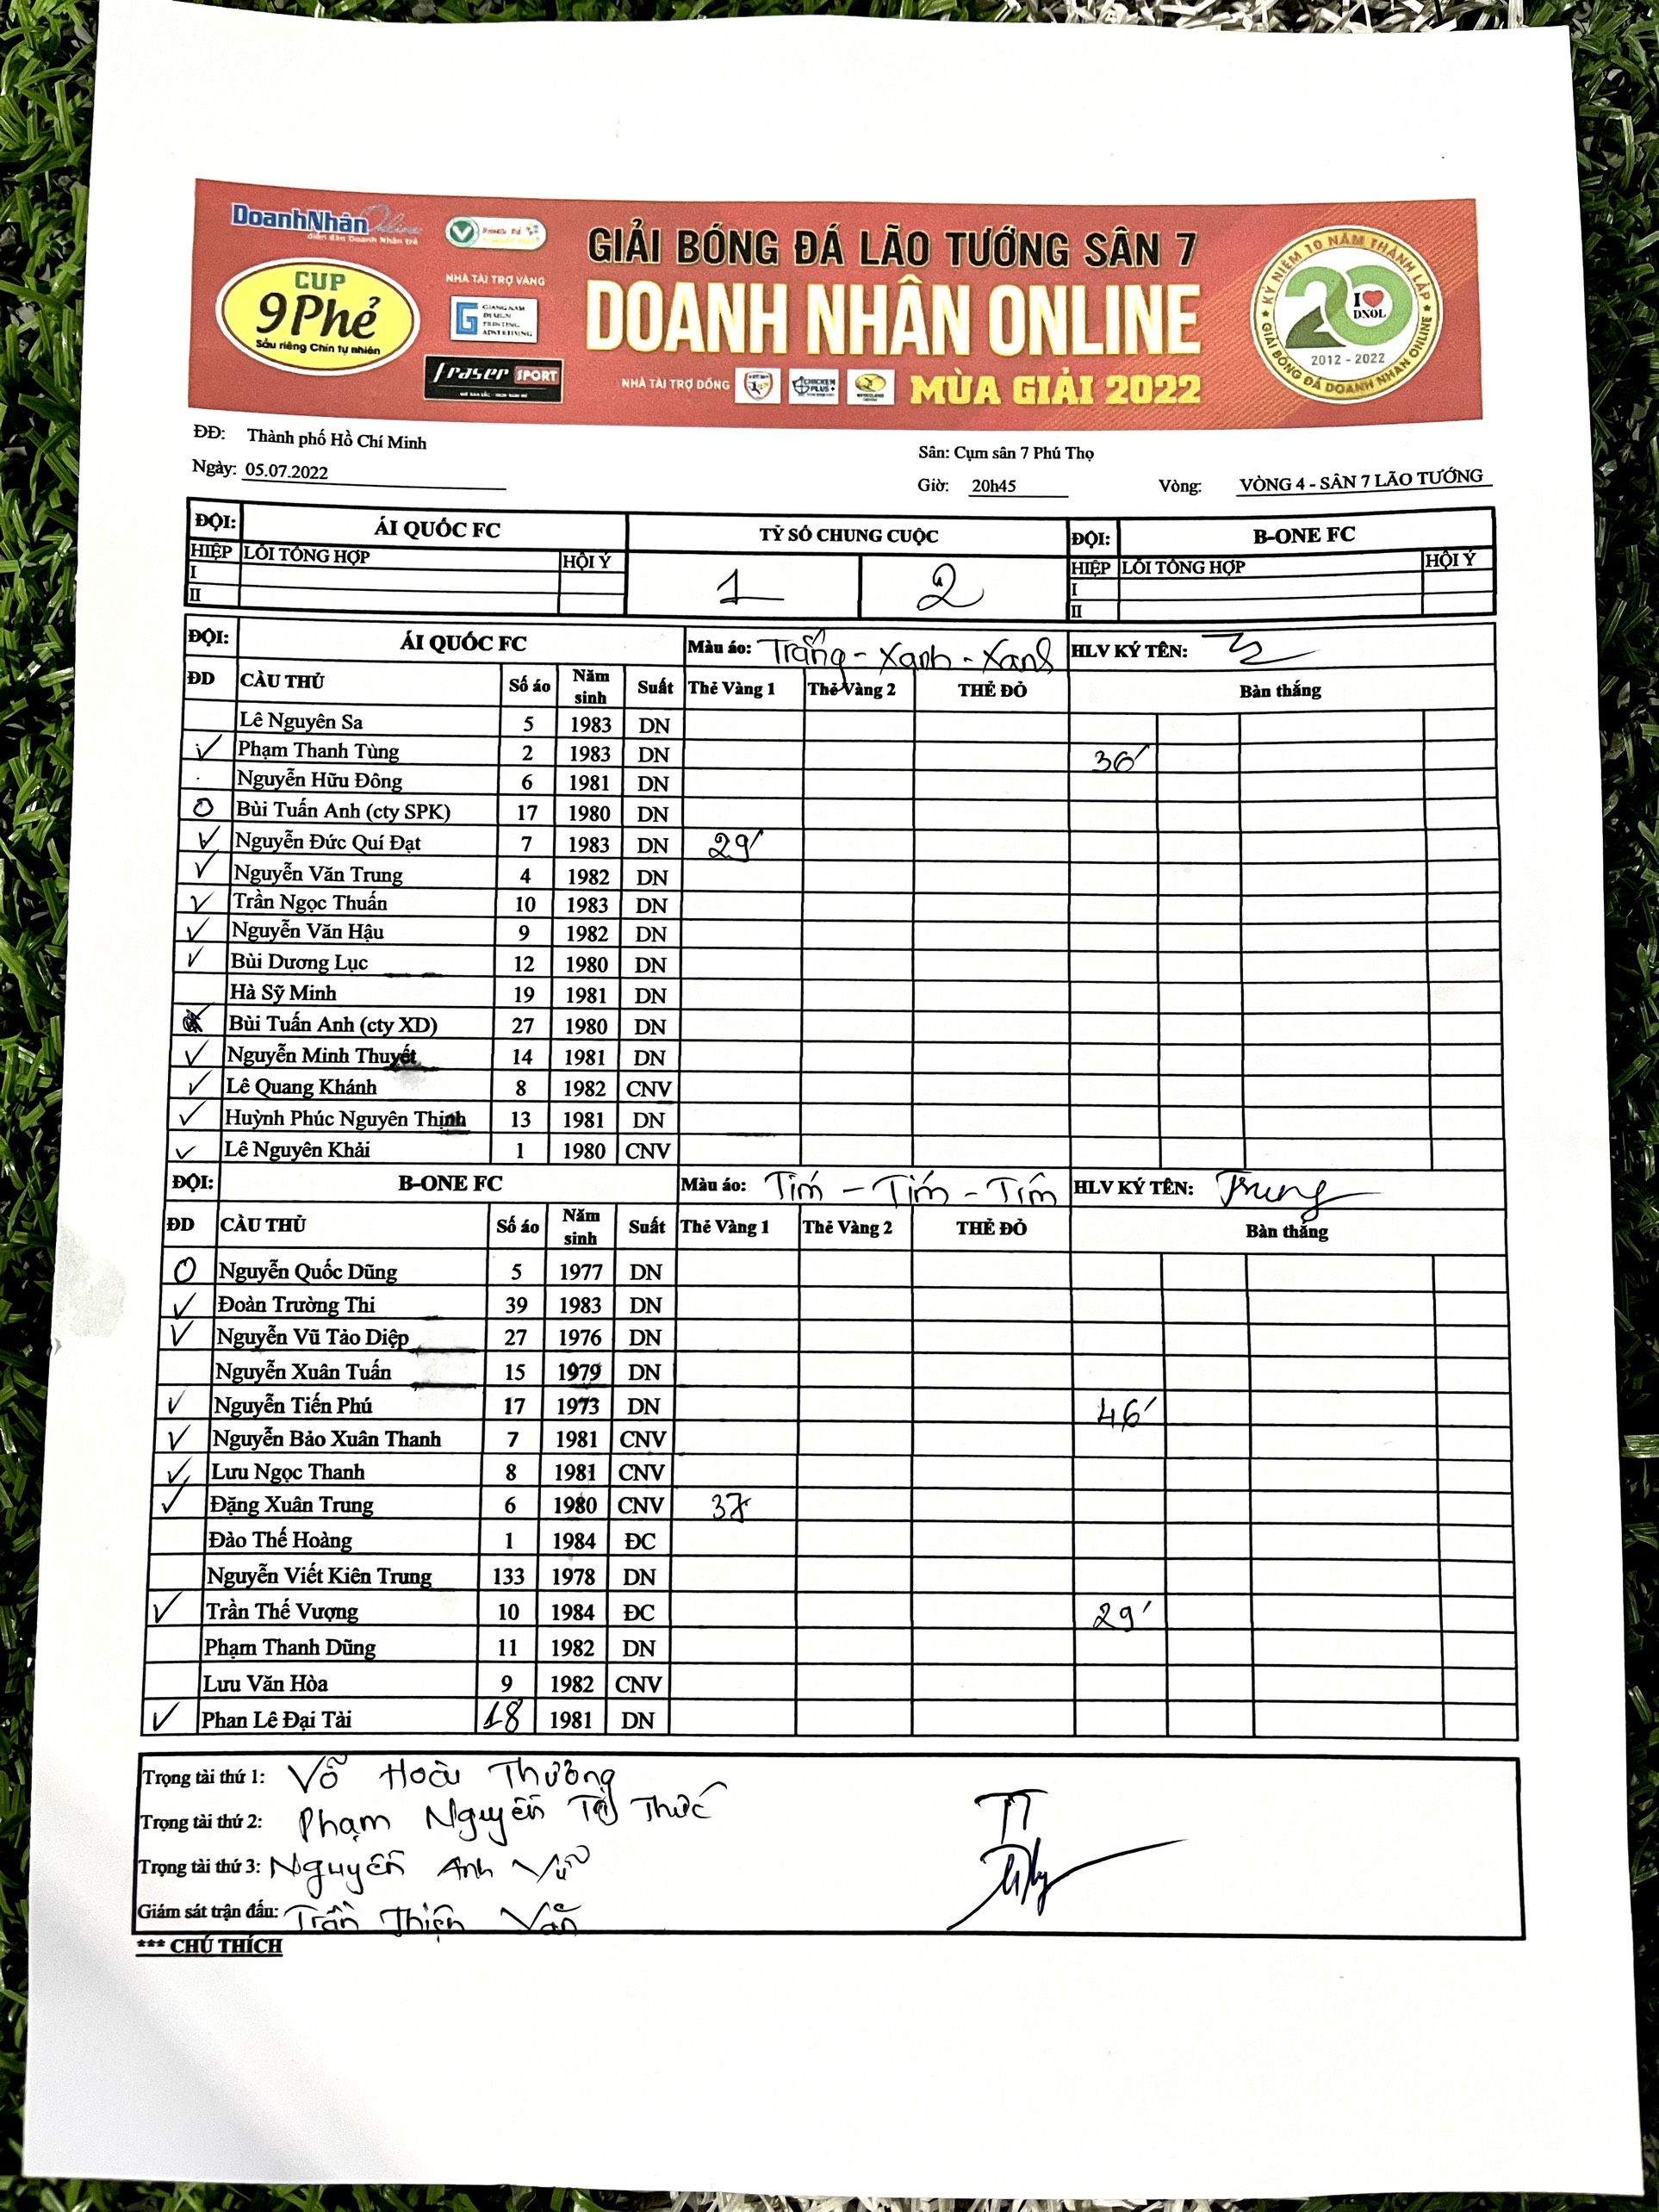 DoanhNhân Online
diễn đàn Doanh Nhân trẻ
CUP
9Phẻ
Sầu riêng Chín tự nhiên
NHÀ TÀI TRỢ VÀNG
GIANG NAM
DESIGN
PRINTING
ADVERTISING
fraser SPORT
GIẢI BÓNG ĐÁ LÃO TƯỚNG SÂN 7
DOANH NHÂN ONLINE
NHÀ TÀI TRỢ ĐỒNG
CHICKEN PLUS+
MÙA GIẢI 2022
KỶ NIỆM 10 NĂM THÀNH LẬP
20
I ❤ DNOL
2012 - 2022
GIẢI BÓNG ĐÁ DOANH NHÂN ONLINE
ĐĐ: Thành phố Hồ Chí Minh
Sân: Cụm sân 7 Phú Thọ
Ngày: 05.07.2022 Giờ: 20h45 Vòng: VÒNG 4 - SÂN 7 LÃO TƯỚNG
ĐỘI: ÁI QUỐC FC TỶ SỐ CHUNG CUỘC ĐỘI: B-ONE FC
HIỆP LỖI TỔNG HỢP HỘI Ý 1 2 HIỆP LỖI TỔNG HỢP HỘI Ý
I I
II II
ĐỘI: ÁI QUỐC FC Màu áo: Trắng - Xanh - Xanh HLV KÝ TÊN:
ĐD CẦU THỦ Số áo Năm sinh Suất Thẻ Vàng 1 Thẻ Vàng 2 THẺ ĐỎ Bàn thắng
Lê Nguyên Sa 5 1983 DN
✓ Phạm Thanh Tùng 2 1983 DN 36'
Nguyễn Hữu Đông 6 1981 DN
O Bùi Tuấn Anh (cty SPK) 17 1980 DN
✓ Nguyễn Đức Quí Đạt 7 1983 DN 29'
✓ Nguyễn Văn Trung 4 1982 DN
✓ Trần Ngọc Thuấn 10 1983 DN
✓ Nguyễn Văn Hậu 9 1982 DN
✓ Bùi Dương Lục 12 1980 DN
Hà Sỹ Minh 19 1981 DN
Bùi Tuấn Anh (cty XD) 27 1980 DN
✓ Nguyễn Minh Thuyết 14 1981 DN
✓ Lê Quang Khánh 8 1982 CNV
✓ Huỳnh Phúc Nguyên Thịnh 13 1981 DN
✓ Lê Nguyên Khải 1 1980 CNV
ĐỘI: B-ONE FC Màu áo: Tím - Tím - Tím HLV KÝ TÊN: Trung
ĐD CẦU THỦ Số áo Năm sinh Suất Thẻ Vàng 1 Thẻ Vàng 2 THẺ ĐỎ Bàn thắng
O Nguyễn Quốc Dũng 5 1977 DN
✓ Đoàn Trường Thi 39 1983 DN
✓ Nguyễn Vũ Tảo Diệp 27 1976 DN
Nguyễn Xuân Tuấn 15 1979 DN
✓ Nguyễn Tiến Phú 17 1973 DN 46'
✓ Nguyễn Bảo Xuân Thanh 7 1981 CNV
✓ Lưu Ngọc Thanh 8 1981 CNV
✓ Đặng Xuân Trung 6 1980 CNV 37
Đào Thế Hoàng 1 1984 ĐC
Nguyễn Viết Kiên Trung 133 1978 DN
✓ Trần Thế Vượng 10 1984 ĐC 29'
Phạm Thanh Dũng 11 1982 DN
Lưu Văn Hòa 9 1982 CNV
✓ Phan Lê Đại Tài 18 1981 DN
Trọng tài thứ 1: Võ Hoài Thương
Trọng tài thứ 2: Phạm Nguyễn Trí Thức
Trọng tài thứ 3: Nguyễn Anh Vũ
Giám sát trận đấu: Trần Thiện Văn
*** CHÚ THÍCH